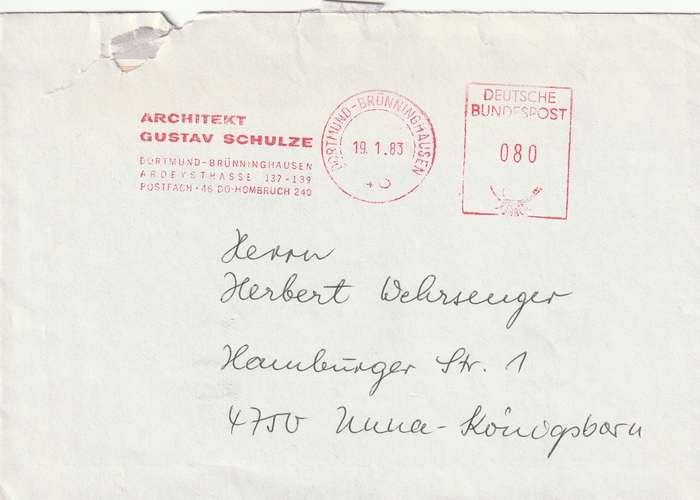 ARCHITEKT
GUSTAV SCHULZE
DORTMUND-BRÜNNINGHAUSEN
ARDEYSTRASSE 137-139
POSTFACH · 46 DO-HOMBRUCH 240
DORTMUND-BRÜNNINGHAUSEN
19.1.83
46
DEUTSCHE
BUNDESPOST
080
Herrn
Herbert Wehrsenger
Hamburger Str. 1
4750 Unna-Königsborn